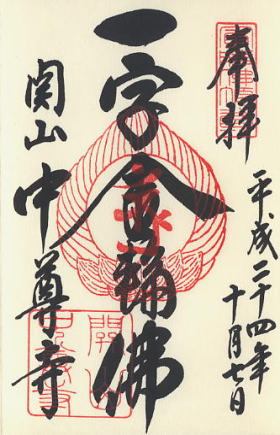 奉拝
平成二十四年
十月七日
一字金輪佛
関山
中尊寺